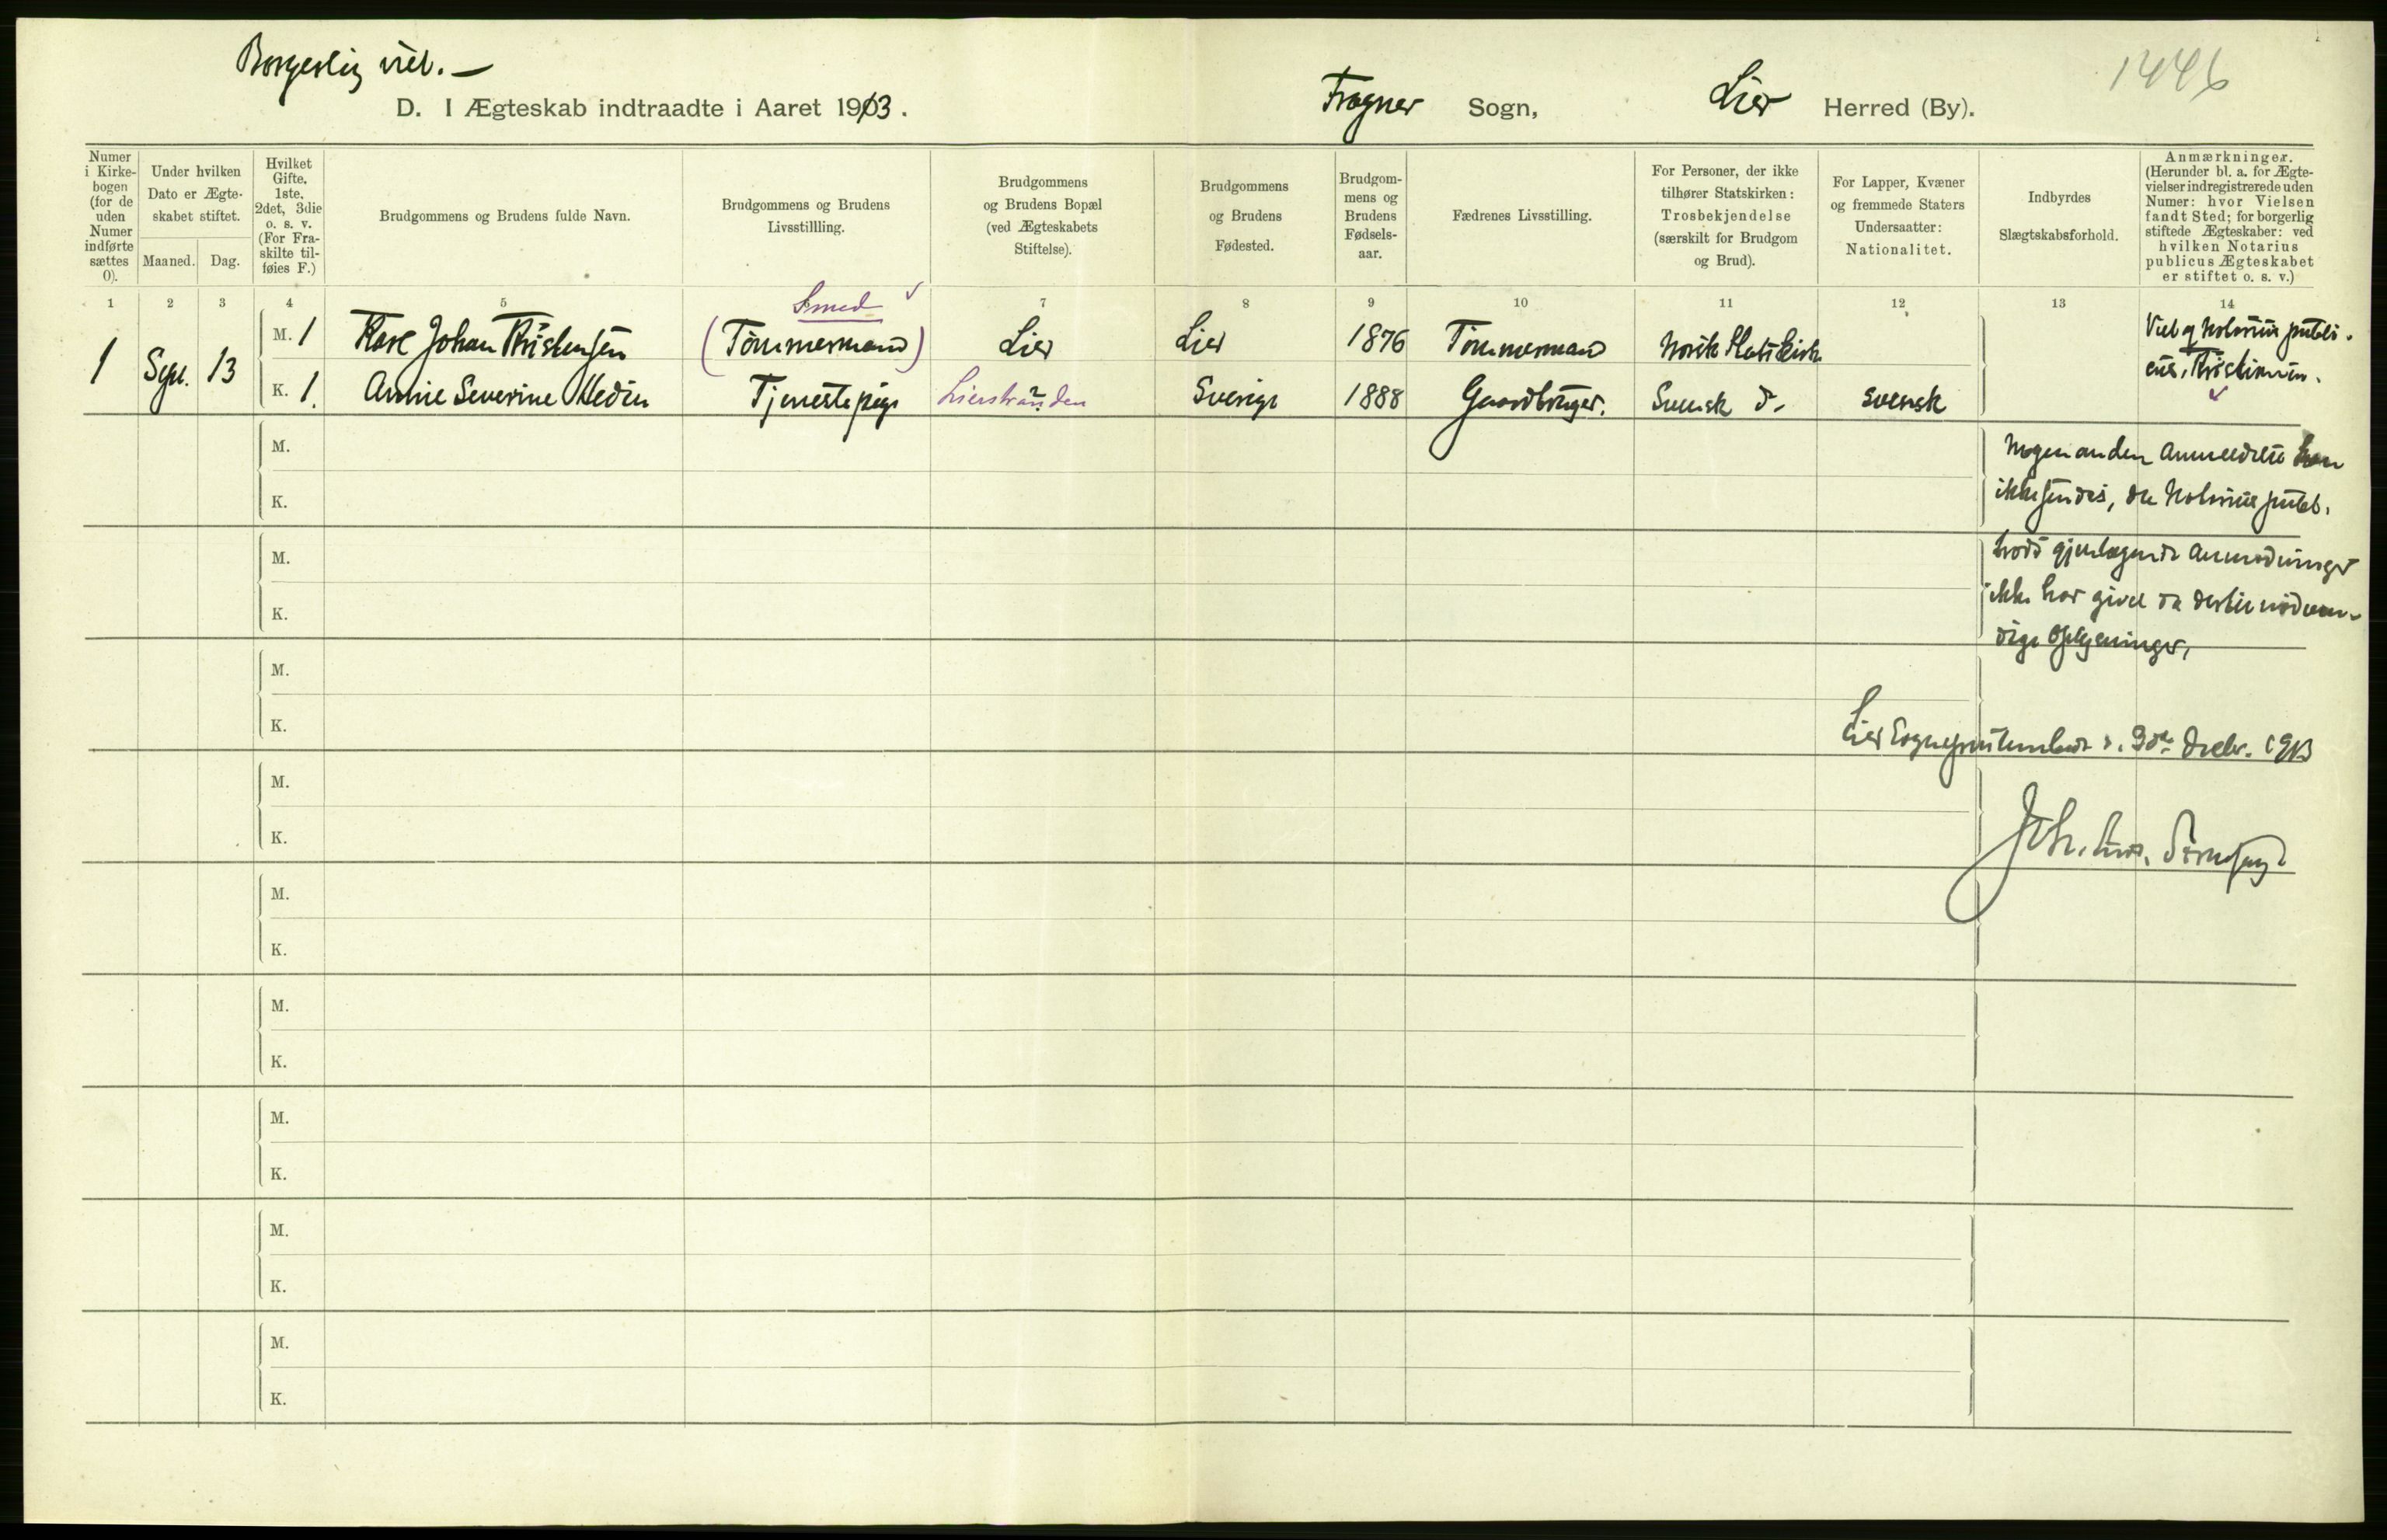 Borgerlig viet. —
1446
D. I Ægteskab indtraadte i Aaret 1913. Frogner Sogn, Lier Herred (By).
Numer i Kirkebogen (for de uden Numer indførte sættes 0).
Under hvilken Dato er Ægteskabet stiftet.
Maaned. Dag.
Hvilket Gifte, 1ste, 2det, 3die o. s. v. (For Fraskilte tilføies F.)
Brudgommens og Brudens fulde Navn.
Brudgommens og Brudens Livsstillling.
Brudgommens og Brudens Bopæl (ved Ægteskabets Stiftelse).
Brudgommens og Brudens Fødested.
Brudgommens og Brudens Fødselsaar.
Fædrenes Livsstilling.
For Personer, der ikke tilhører Statskirken: Trosbekjendelse (særskilt for Brudgom og Brud).
For Lapper, Kvæner og fremmede Staters Undersaatter: Nationalitet.
Indbyrdes Slægtskabsforhold.
Anmærkninger. (Herunder bl. a. for Ægtevielser indregistrerede uden Numer: hvor Vielsen fandt Sted; for borgerlig stiftede Ægteskaber: ved hvilken Notarius publicus Ægteskabet er stiftet o. s. v.)
1 2 3 4 5 6 7 8 9 10 11 12 13 14
Smed
1 Sept. 13
M. 1 Karl Johan Kristensen (Tømmermand) Lier Lier 1876 Tømmermand Norsk Statskirke
K. 1. Annie Severine Medin Tjenestepige Lierstranden ? Sverige 1888 Gaardbruger. Svensk d- svensk
Viet af Notarius publi-
cus, Kristiania.
M.
K.
Nogen anden Anmeldelse kan
ikke sendes, da Notarius publ.
M.
K.
trods gjentagende Anmodninger
ikke har givet de dertil nødven-
dige Oplysninger.
M.
K.
Lier Sogneprestembede d. 30te Decbr. 1913
M.
K.
Joh.
M.
K.
M.
K.
M.
K.
M.
K.
M.
K.